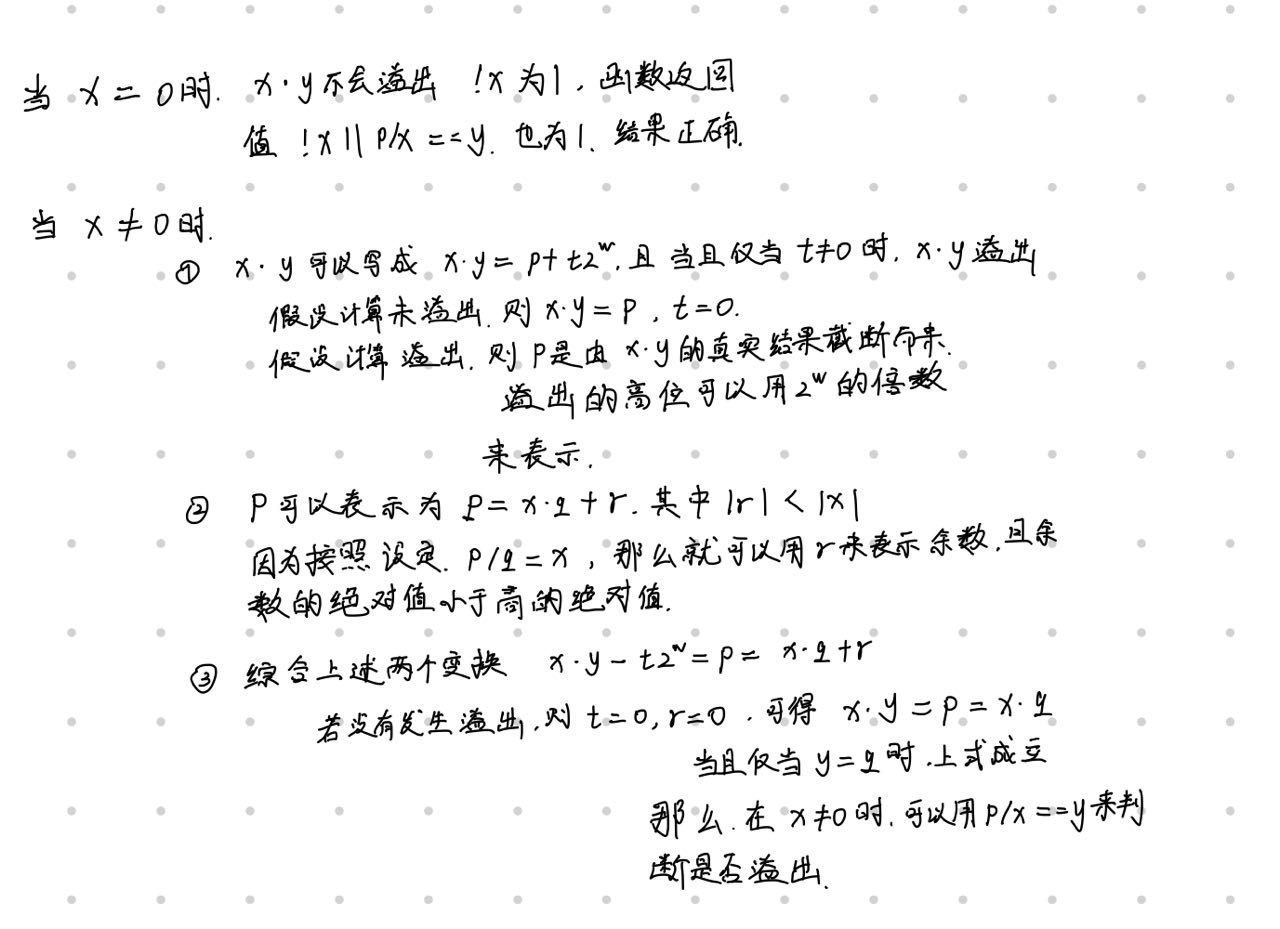 当 x = 0时. x·y不会溢出 !x 为1, 函数返回
值 !x || p/x == y. 也为1、结果正确.
当 x ≠ 0时.
① x·y 可以写成 x·y = p + t2^w, 且 当且仅当 t≠0 时, x·y 溢出
假设计算未溢出. 则 x·y = p, t=0.
假设计算溢出. 则 p是由 x·y 的真实结果截断而来.
溢出的高位可以用 2^w 的倍数
来表示.
② p可以表示为 p = x·q + r. 其中 |r| < |x|
因为按照设定. p/q = x, 那么就可以用r来表示余数, 且余
数的绝对值小于商的绝对值.
③ 综合上述两个变换 x·y - t2^w = p = x·q + r
若没有发生溢出, 则 t=0, r=0. 可得 x·y = p = x·q
当且仅当 y = q 时. 上式成立
那么. 在 x≠0 时. 可以用 p/x == y 来判
断是否溢出.